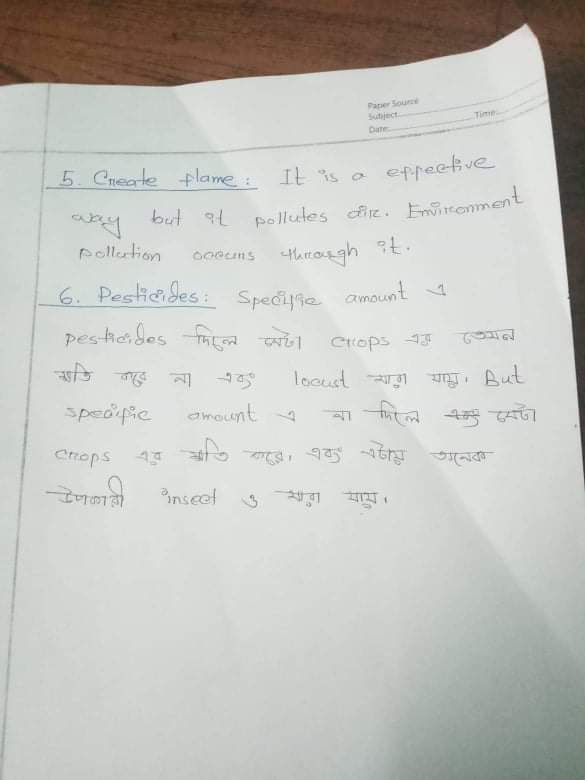 Paper Source
Subject
Time:
Date:
5. Create flame: It is a effective
way but it pollutes air. Environment
pollution occurs through it.
6. Pesticides: Specific amount এ
pesticides দিলে সেটা crops এর তেমন
ক্ষতি করে না এবং locust মারা যায়। But
specific amount এ না দিলে এবং সেটা
crops এর ক্ষতি করে। এবং এটায় অনেক
উপকারী insect ও মারা যায়।